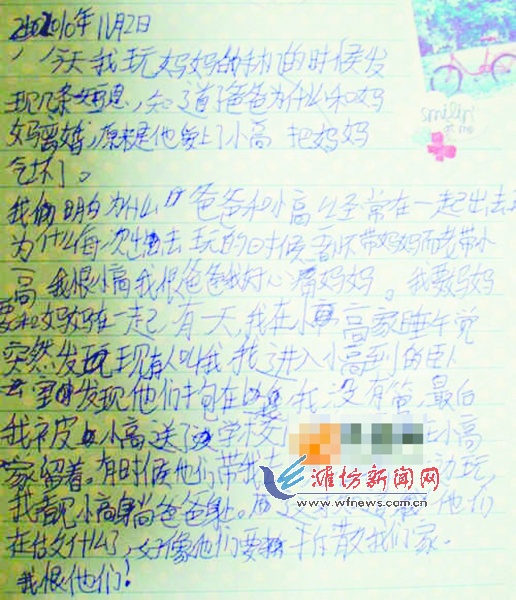 2010年11月2日
今天我玩妈妈的手机的时候发
现几条短息，知了道了爸爸为什么和妈
妈离婚，原来是他爱上了小高 把妈妈
气坏了。
我 明白为什么 爸爸和小高经常在一起出去
为什么每一次出去玩的时候 不带妈妈而老带小
高 我恨小高我恨爸爸我好心 妈妈。我要妈妈
要和妈妈在一起 有一天，我在小高家睡午觉
突然发现有人叫我 我 进入小高 的卧
室 发现他们抱在 我没有 最后
我被 小高送 学校 小高
家留着 有时候他们带我 玩
我看见小高 爸爸身上。 他们
在 什么，好像他们要 拆散我们家。
我恨他们！
smilin'
at me
潍坊新闻网
www.wfnews.com.cn